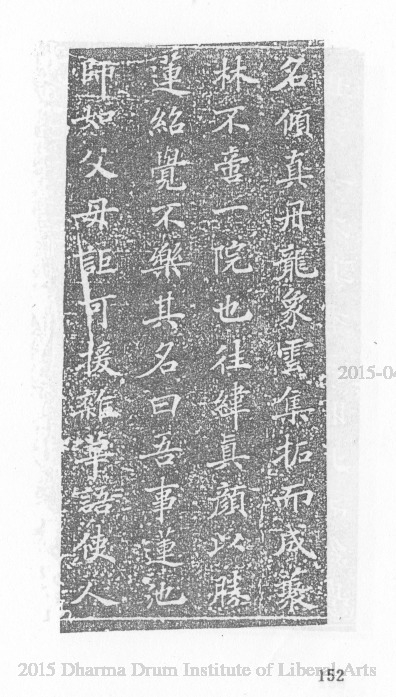 名傾真丹龍象雲集拓而成叢
林不啻一院也往緯真顏以勝
蓮紹覺不樂其名曰吾事蓮池
師如父母詎可援雜華語使人
2015-04
2015 Dharma Drum Institute of Liberal Arts
152